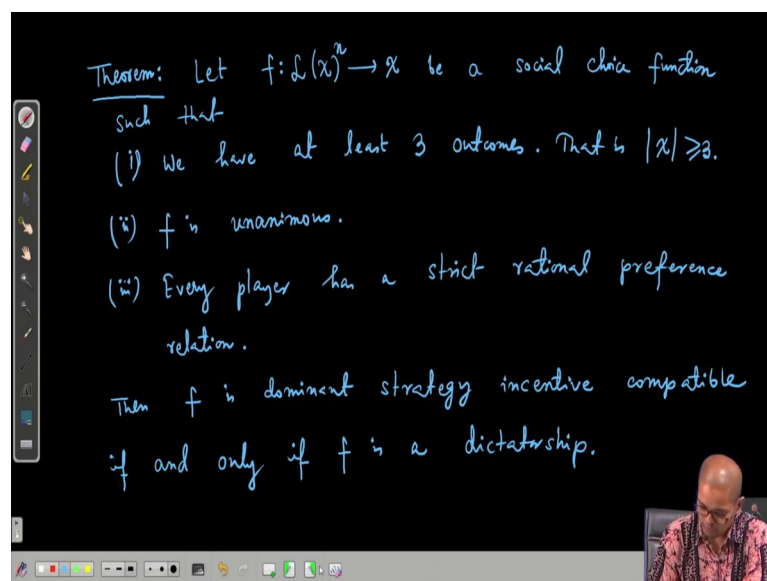 Theorem: Let f: L(X)^n → X be a social choice function
such that
(i) We have at least 3 outcomes. That is |X| ≥ 3.
(ii) f is unanimous.
(iii) Every player has a strict rational preference
relation.
Then f is dominant strategy incentive compatible
if and only if f is a dictatorship.